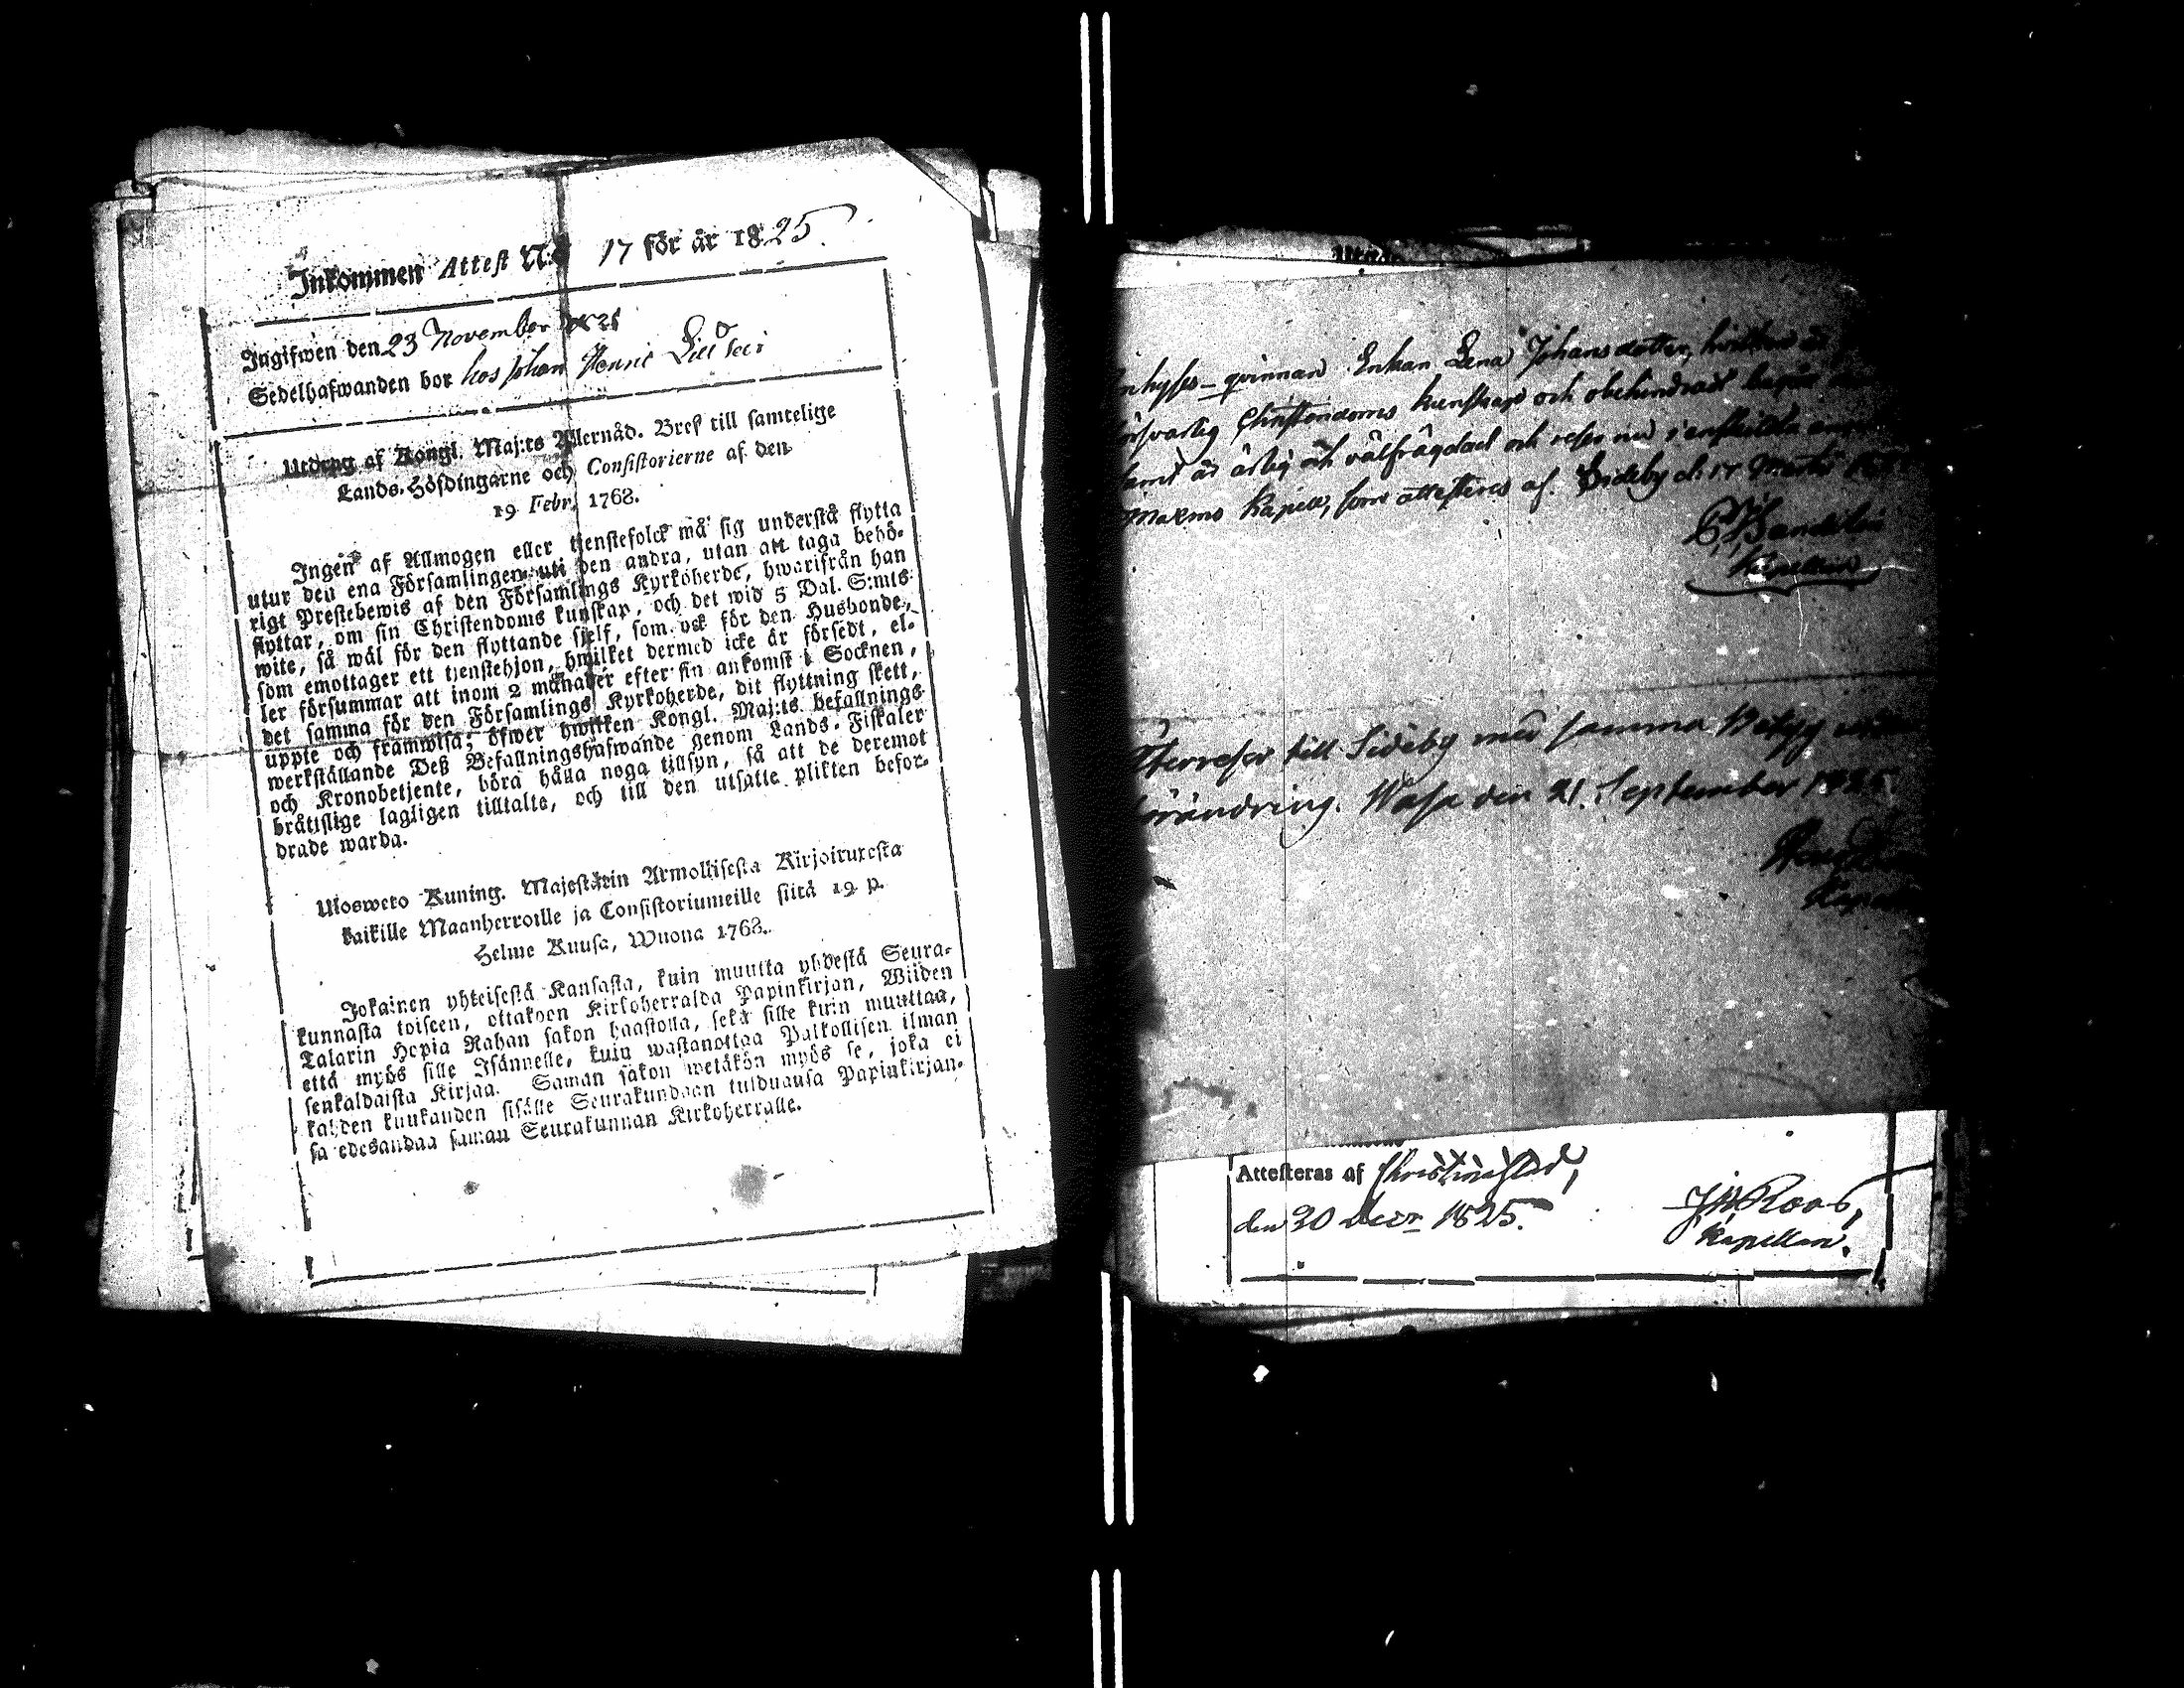 Inkommen Attest N:o 17 för år 1825.
Ingifwen den 23 November 1825
Sedelhafwanden bor hos Johan Henric Lill
Utdrag af Kongl. Maj:ts Allernåd. Bref till samtelige
Lands-Höfdingarne och Consistorierne af den
19 Febr. 1768.
Ingen af Allmogen eller tjenstefolck må sig understå flytta
utur den ena Församlingen uti den andra, utan att taga behö-
rigt Prestebewis af den Församlings Kyrkoherde, hwarifrån han
flyttar, om sin Christendoms kunskap, och det wid 5 Dal. S:mts
wite, så wäl för den flyttande sjelf, som ock för den Husbonde,
som emottager ett tjenstehjon, hwilket dermed icke är försedt, el-
ler försummar att inom 2 månader efter sin ankomst i Socknen,
det samma för den Församlings Kyrkoherde, dit flyttning skett,
uppte och framwisa; öfwer hwilken Kongl. Maj:ts befallnings
werkställande Deß Befallningshafwande genom Lands-Fiskaler
och Kronobetjente, böra hålla noga tillsyn, så att de deremot
bråtislige lagligen tilltalte, och till den utsatte plikten befor-
drade warda.
Ulosweto Kuning. Majestätin Armollisesta Kirjoituxesta
kaikille Maanherroille ja Consistoriumeille siitä 19 p.
Helme Kuusa, Wuona 1768.
Jokainen yhteisestä Kansasta, kuin muutta yhdestä Seura-
kunnasta toiseen, ottakoen Kirkoherralda Papinkirjan, Wiiden
Talarin Hopia Rahan sakon haastolla, sekä sille kuin muuttaa,
että myös sille Isännelle, kuin wastanottaa Palkollisen ilman
senkaldaista Kirjaa. Saman sakon wetäkön myös se, joka ei
kahden kuukauden sisälle Seurakundaan tulduansa Papinkirjan-
sa edesandaa saman Seurakunnan Kirkoherralle.
qvinnan Enkan Lena Johansdotter, hvilken är
försvarlig Christendoms kunskap och obehindrad
samt är ärlig och välfrägdad och reser nu i enskilda
Maxmo Kapell, som attesteras af. Sideby d. 17 Martii
Kapellan
Återreser till Sideby med samma Betyg utan
förändring. Wasa den 21. September 1825.
Attesteras af Christinestad,
den 30 Decr 1825.
J W Roos,
Kapellan.